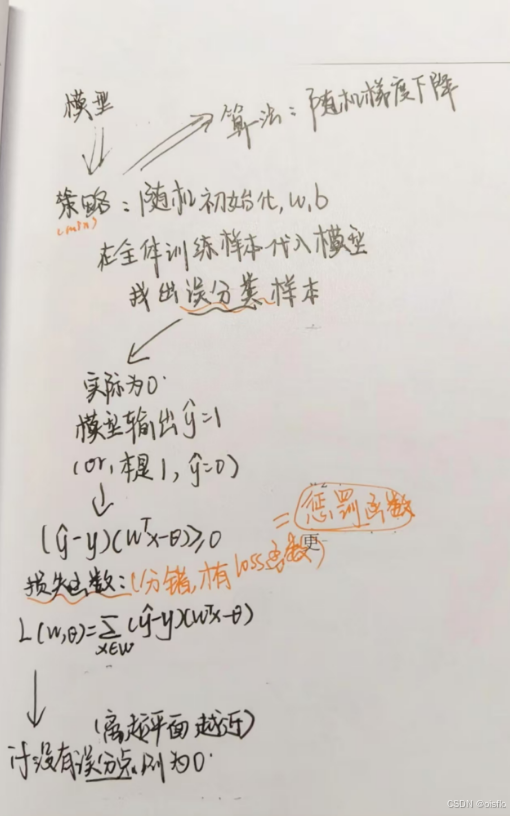 模型
算法：随机梯度下降
策略：随机初始化，w,b
(min)
在全体训练样本代入模型
找出误分类样本
实际为0.
模型输出ŷ=1
(or,本是1,ŷ=0)
(ŷ-y)(wᵀx-θ)≥0
=惩罚函数
更
损失函数：(分错,才有loss函数)
L(w,θ)=∑(ŷ-y)(wᵀx-θ)
x∈w
(离超平面越近)
没有误分点,则为0.
CSDN @oisfio